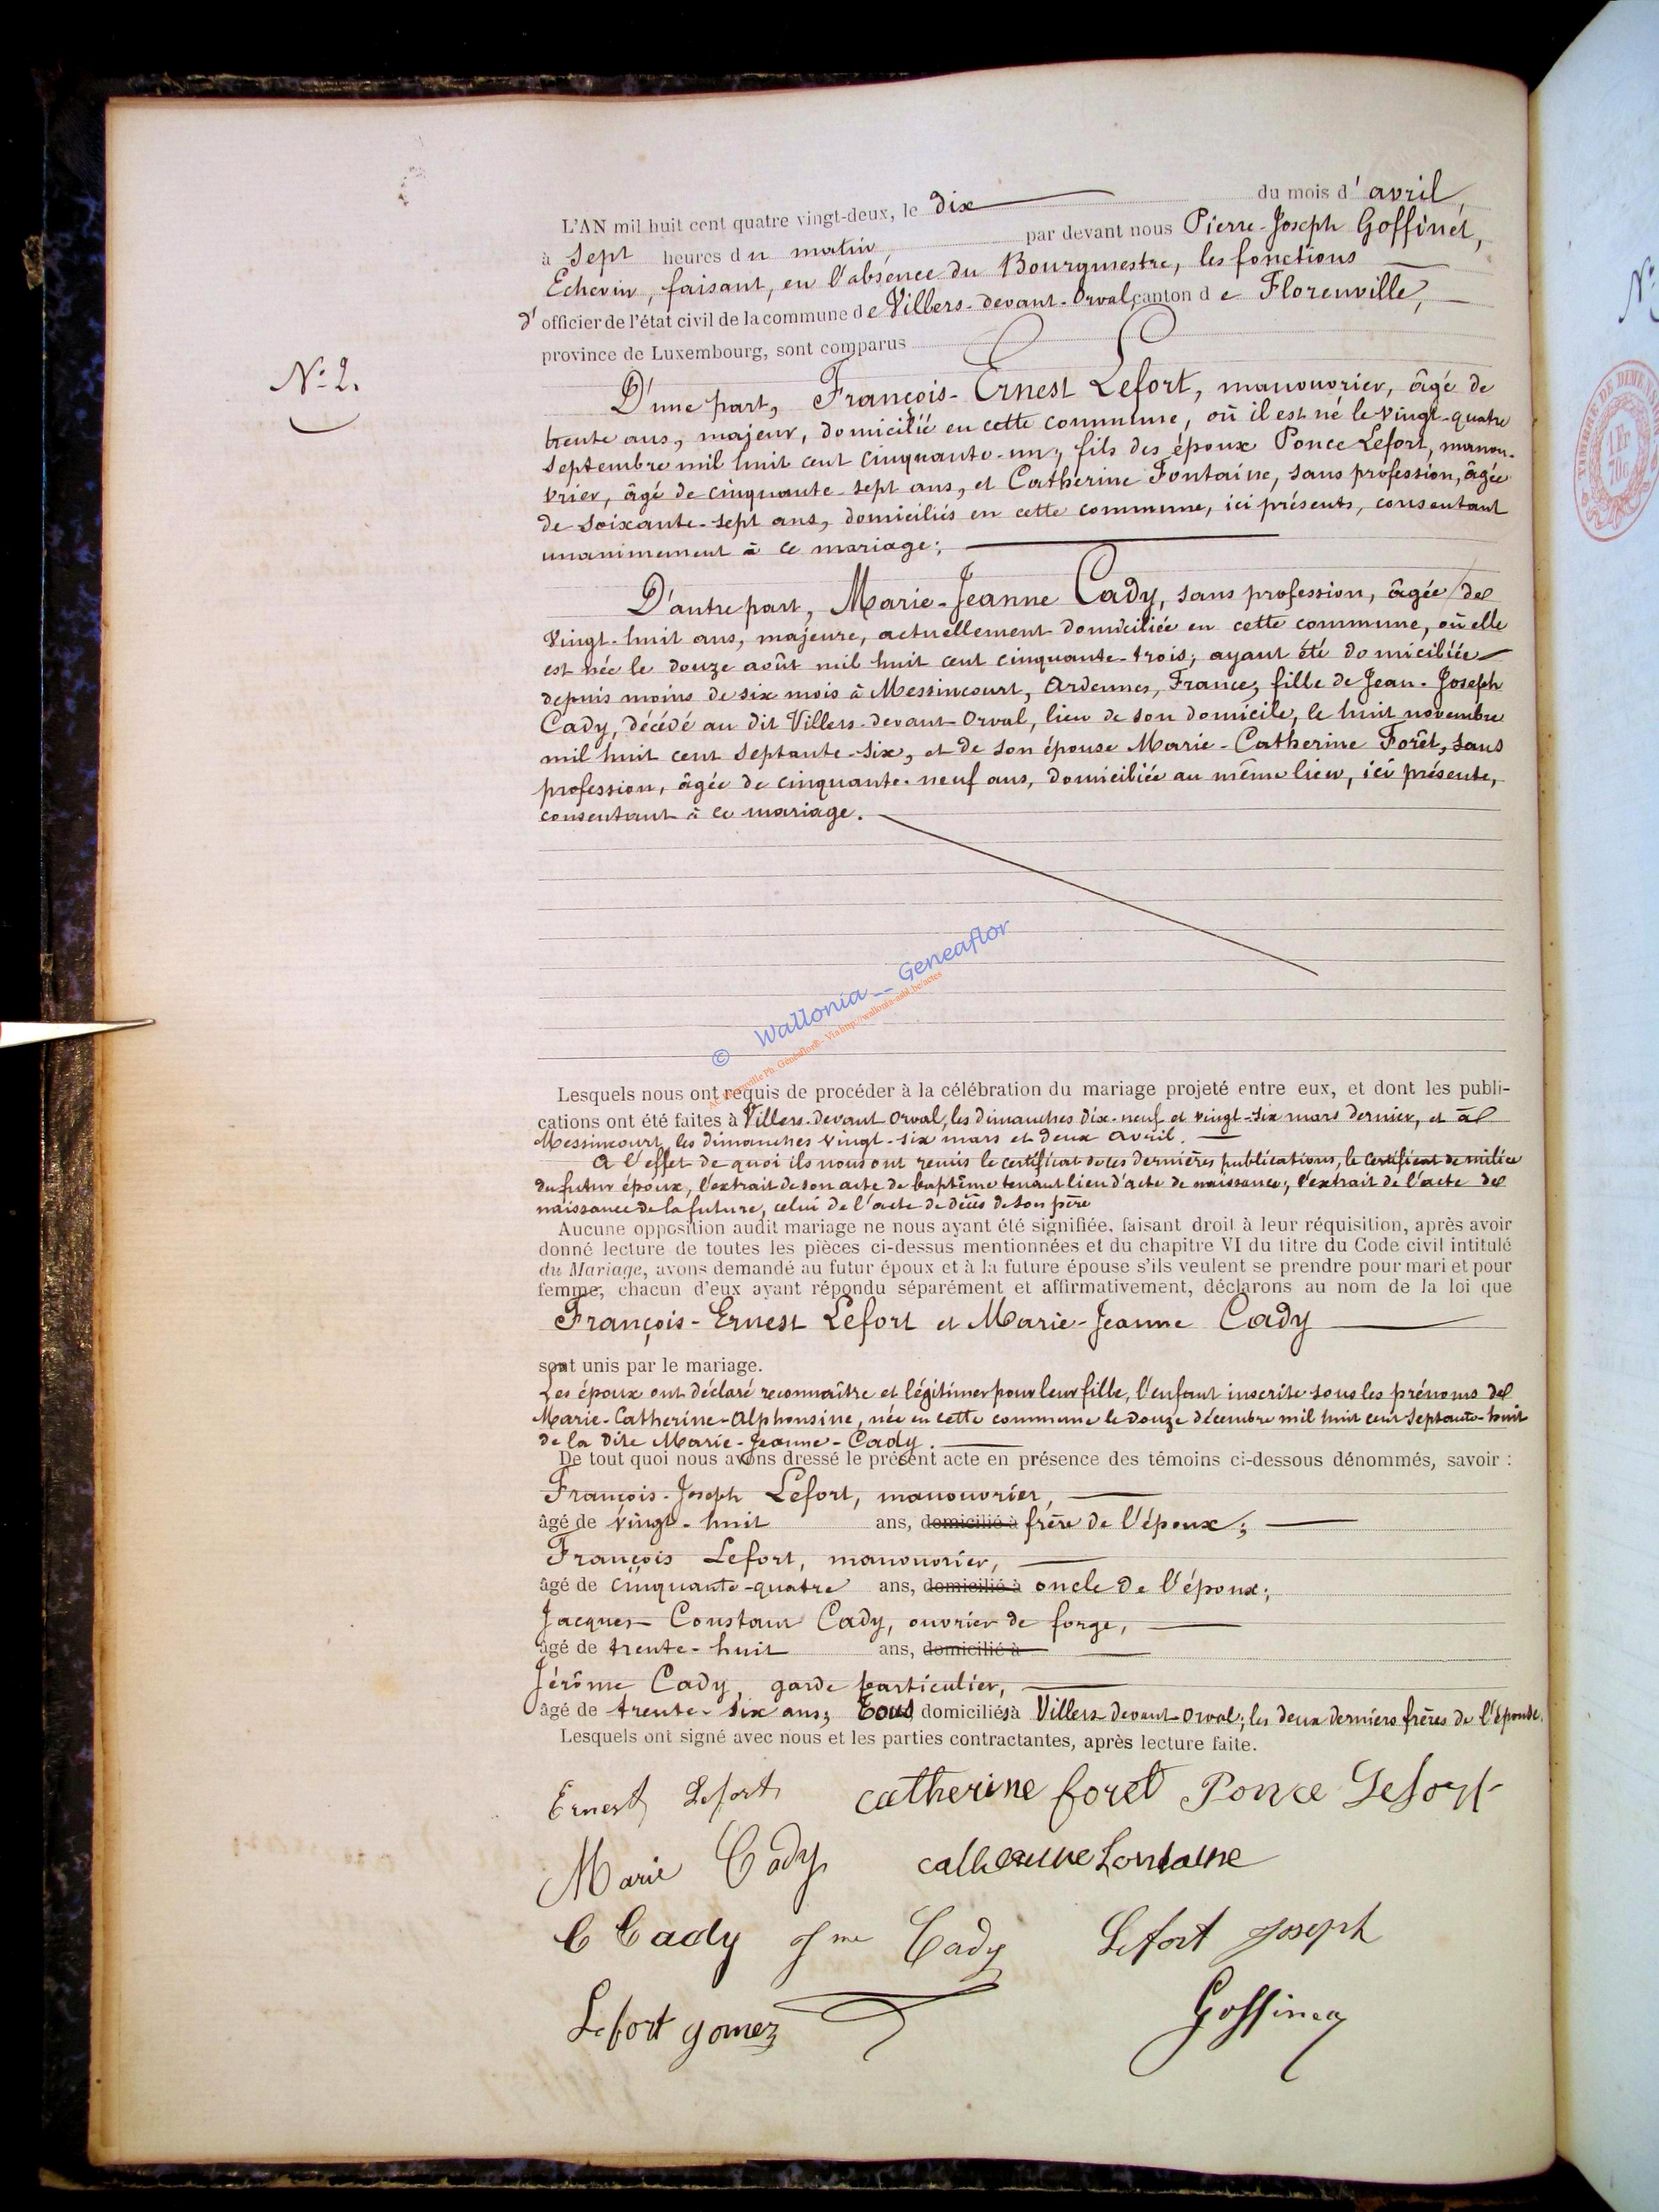 L'AN mil huit cent quatre vingt-deux, le dix du mois d'avril,
à sept heures du matin, par devant nous Pierre-Joseph Goffinet,
Echevin, faisant, en l'absence du Bourgmestre, les fonctions
d' officier de l'état civil de la commune de Villers-devant-Orval, canton de Florenville,
province de Luxembourg, sont comparus
N° 2.
D'une part, François-Ernest Lefort, manouvrier, âgé de
trente ans, majeur, domicilié en cette commune, où il est né le vingt-quatre
septembre mil huit cent cinquante-un, fils des époux Ponce Lefort, manou-
vrier, âgé de cinquante-sept ans, et Catherine Fontaine, sans profession, âgée
de soixante-sept ans, domiciliés en cette commune, ici présents, consentant
unanimement à ce mariage;
D'autre part, Marie-Jeanne Cady, sans profession, âgée de
vingt-huit ans, majeure, actuellement domiciliée en cette commune, où elle
est née le douze août mil huit cent cinquante-trois; ayant été domiciliée
depuis moins de six mois à Messincourt, Ardennes, France, fille de Jean-Joseph
Cady, décédé au dit Villers-devant-Orval, lieu de son domicile, le huit novembre
mil huit cent septante-six, et de son épouse Marie-Catherine Forêt, sans
profession, âgée de cinquante-neuf ans, domiciliée au même lieu, ici présente,
consentant à ce mariage.
© Wallonia__Geneaflor
Ph. Généaflor® - Via http://wallonia-asbl.be/actes
Lesquels nous ont requis de procéder à la célébration du mariage projeté entre eux, et dont les publi-
cations ont été faites à Villers-devant Orval, les dimanches dix-neuf et vingt-six mars dernier, et à
Messincourt, les dimanches vingt-six mars et deux avril.
A l'effet de quoi ils nous ont remis le certificat de ces dernières publications, le certificat de milice
du futur époux, l'extrait de son acte de baptême tenant lieu d'acte de naissance; l'extrait de l'acte de
naissance de la future, celui de l'acte de décès de son père
Aucune opposition audit mariage ne nous ayant été signifiée, faisant droit à leur réquisition, après avoir
donné lecture de toutes les pièces ci-dessus mentionnées et du chapitre VI du titre du Code civil intitulé
du Mariage, avons demandé au futur époux et à la future épouse s'ils veulent se prendre pour mari et pour
femme; chacun d'eux ayant répondu séparément et affirmativement, déclarons au nom de la loi que
François-Ernest Lefort et Marie-Jeanne Cady
sont unis par le mariage.
Les époux ont déclaré reconnaître et légitimer pour leur fille, l'enfant inscrite sous les prénoms de
Marie-Catherine-Alphonsine, née en cette commune le douze décembre mil huit cent septante-huit
de la dite Marie-Jeanne-Cady.
De tout quoi nous avons dressé le présent acte en présence des témoins ci-dessous dénommés, savoir :
François-Joseph Lefort, manouvrier,
âgé de vingt-huit ans, domicilié à frère de l'époux;
François Lefort, manouvrier,
âgé de cinquante-quatre ans, domicilié à oncle de l'époux;
Jacques Constant Cady, ouvrier de forge,
âgé de trente-huit ans, domicilié à
Jérôme Cady, garde particulier,
âgé de trente-six ans; Tous domiciliés à Villers devant-Orval; les deux derniers frères de l'épouse.
Lesquels ont signé avec nous et les parties contractantes, après lecture faite.
Ernest Lefort catherine foret Ponce Lefort
Marie Cady catherine Fontaine
C Cady Jme Cady Lefort Joseph
Lefort gomez Goffinet
TIMBRE DE DIMENSION
N°